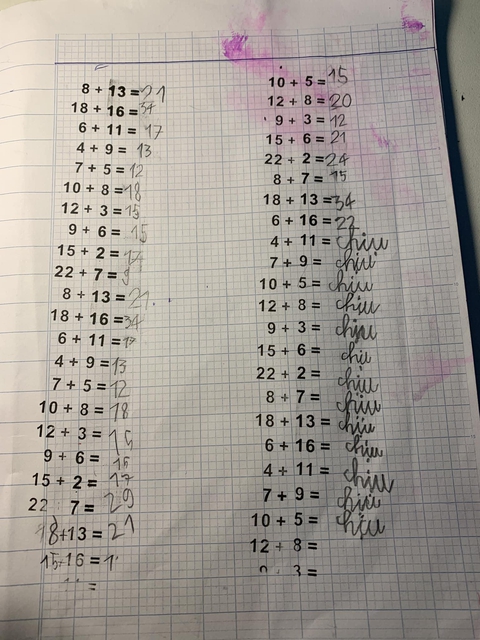 8 + 13 = 21
18 + 16 = 34
6 + 11 = 17
4 + 9 = 13
7 + 5 = 12
10 + 8 = 18
12 + 3 = 15
9 + 6 = 15
15 + 2 = 17
22 + 7 =
8 + 13 = 21
18 + 16 = 34
6 + 11 = 17
4 + 9 = 13
7 + 5 = 12
10 + 8 = 18
12 + 3 = 15
9 + 6 = 15
15 + 2 = 17
22 7 = 29
8+13 = 21
15 16 = 1
10 + 5 = 15
12 + 8 = 20
9 + 3 = 12
15 + 6 = 21
22 + 2 = 24
8 + 7 = 15
18 + 13 = 34
6 + 16 = 22
4 + 11 = chịu
7 + 9 = chịu
10 + 5 = chịu
12 + 8 = chịu
9 + 3 = chịu
15 + 6 = chịu
22 + 2 = chịu
8 + 7 = chịu
18 + 13 = chịu
6 + 16 = chịu
4 + 11 = chịu
7 + 9 = chịu
10 + 5 = chịu
12 + 8 =
3 =